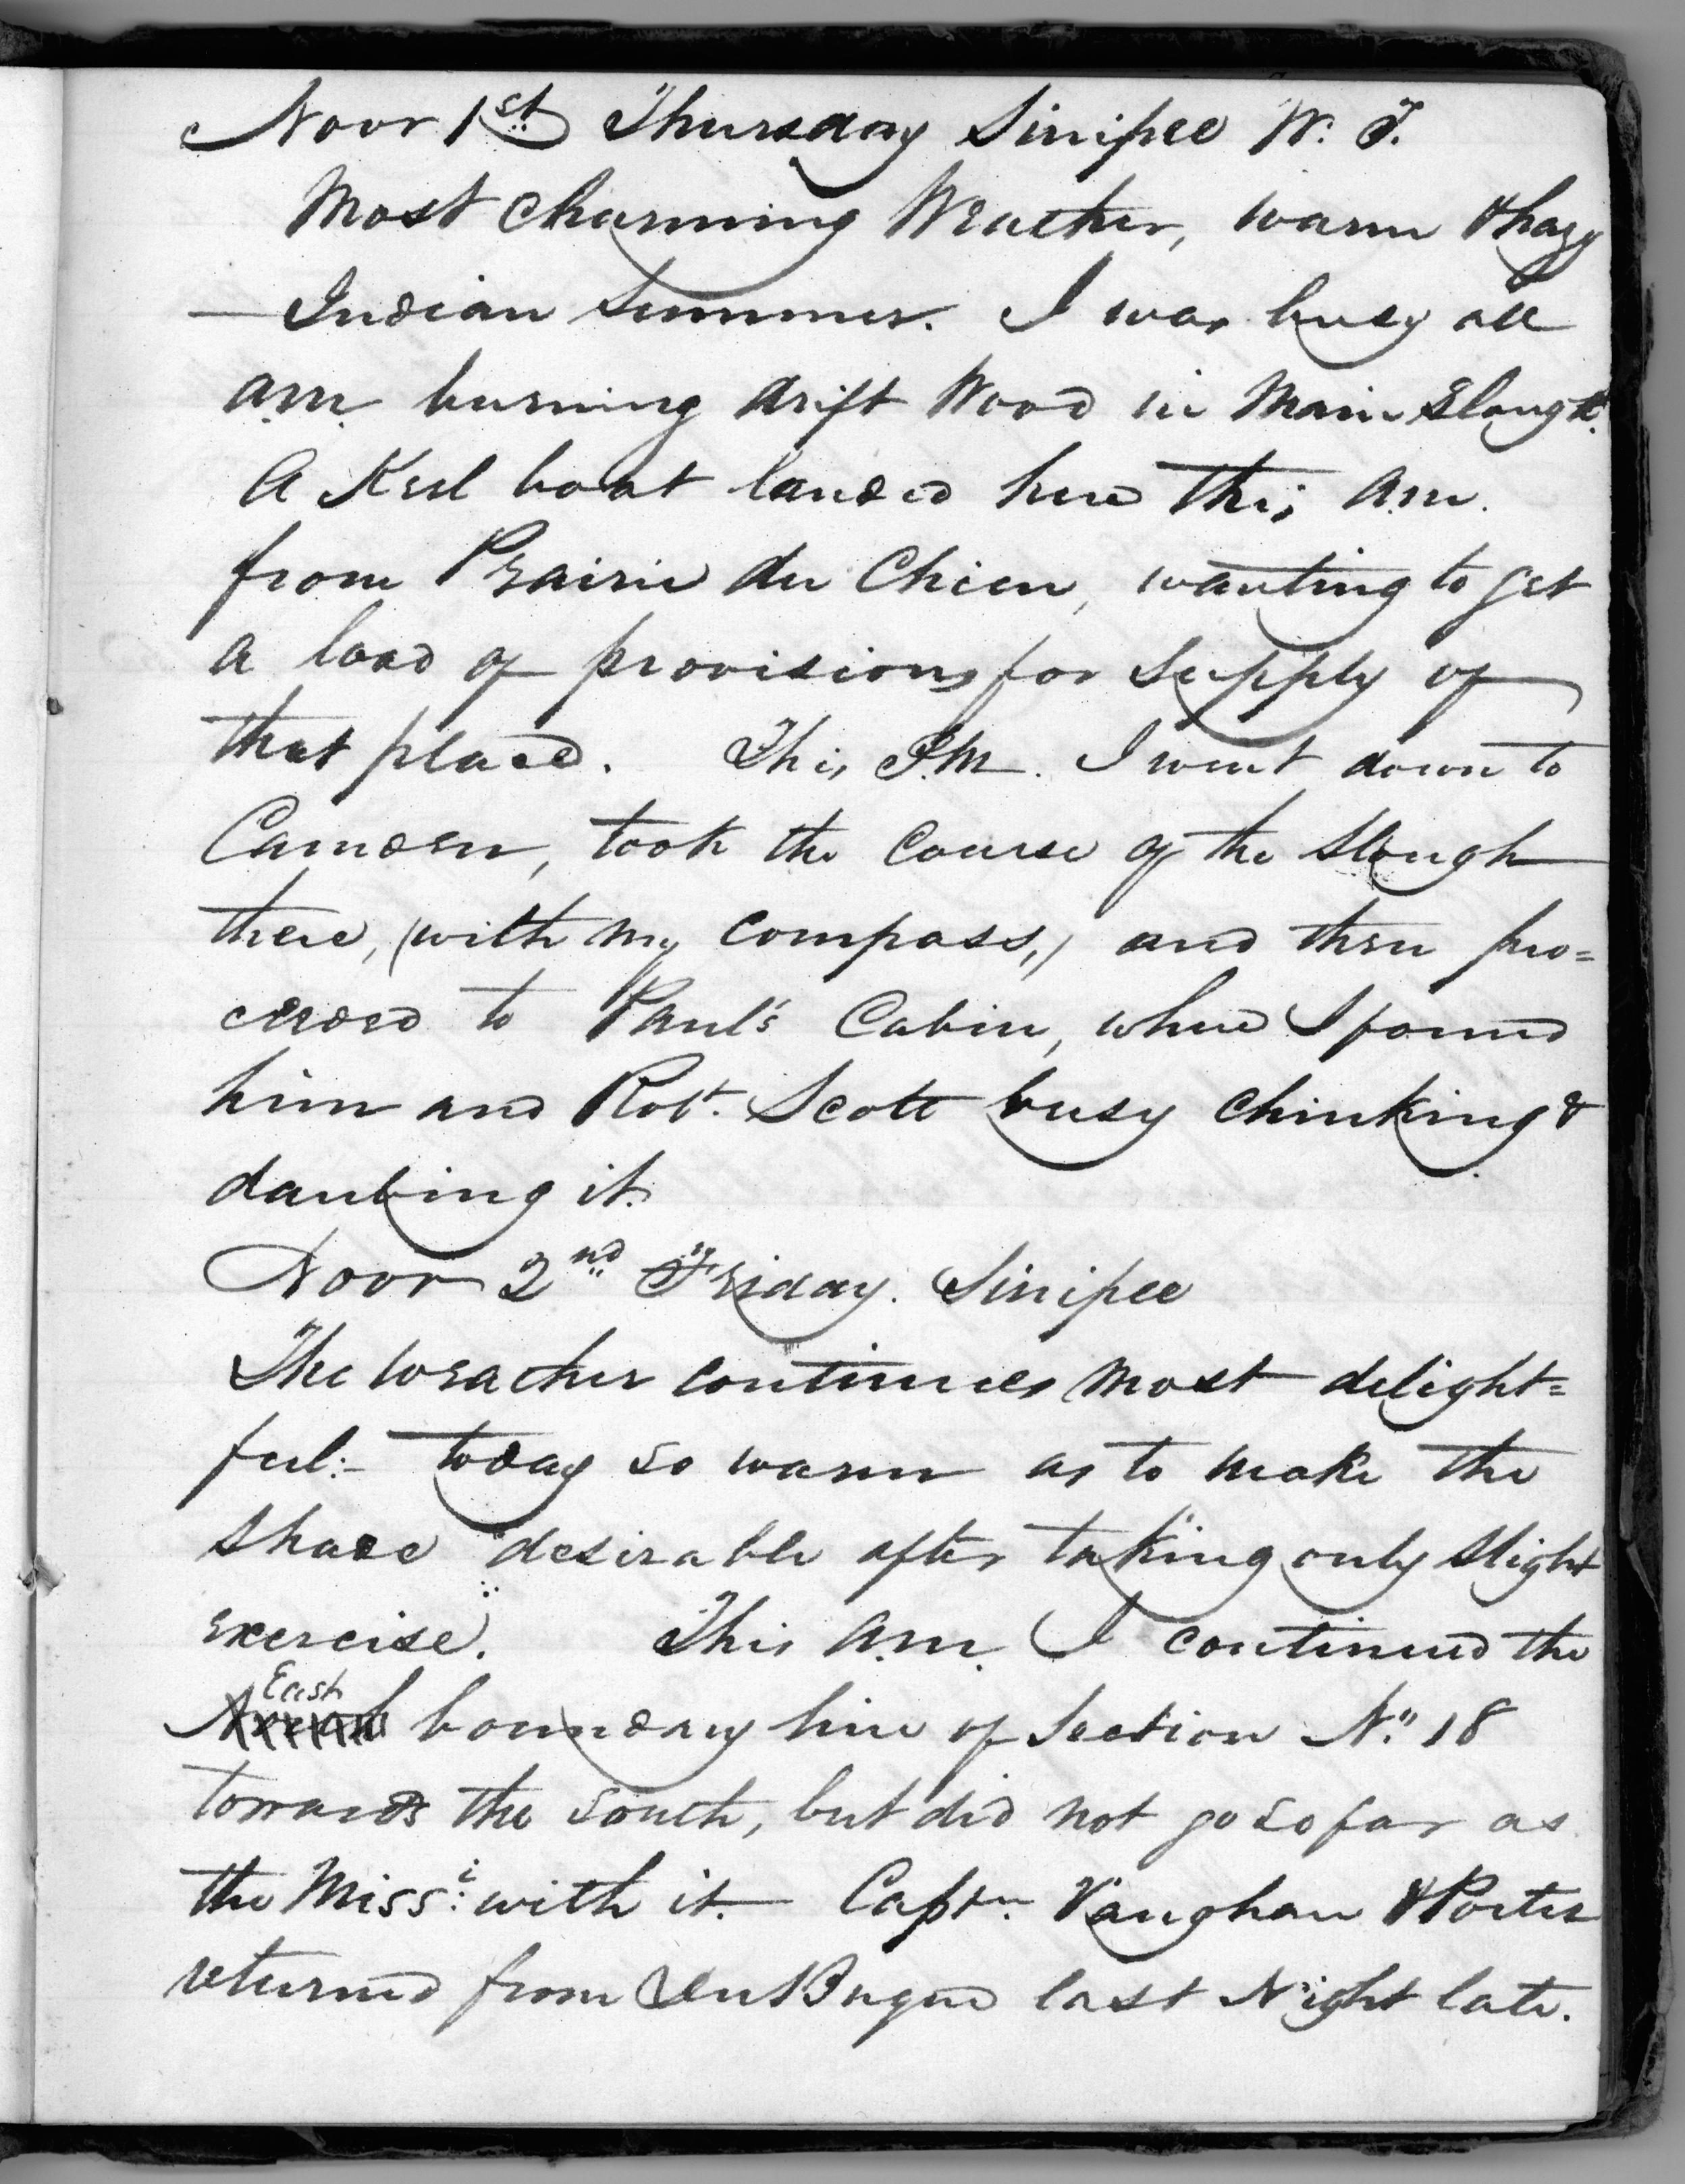 Novr 1st Thursday Sinipee W. T.
Most charming Weather, warm & hazy
— Indian Summer. I was busy all
a.m. burning drift Wood in Main Slough.
A Keel boat landed here this a.m.
from Prairie du Chien, wanting to get
a load of provisions for supply of
that place. This P.M. I went down to
Camden, took the course of the Slough
there, (with my compass,) and then pro=
ceeded to Paul's Cabin, where I found
him and Robt. Scott busy chinking &
daubing it.
Novr 2nd Friday. Sinipee
The weather continues most delight=
ful:- today so warm as to make the
shade desirable after taking only slight
exercise. This a.m. I continued the
East
boundary line of Section No. 18
towards the south, but did not go so far as
the Missi: with it. Captn. Vaughan & Porter
returned from DuBuque last Night late.